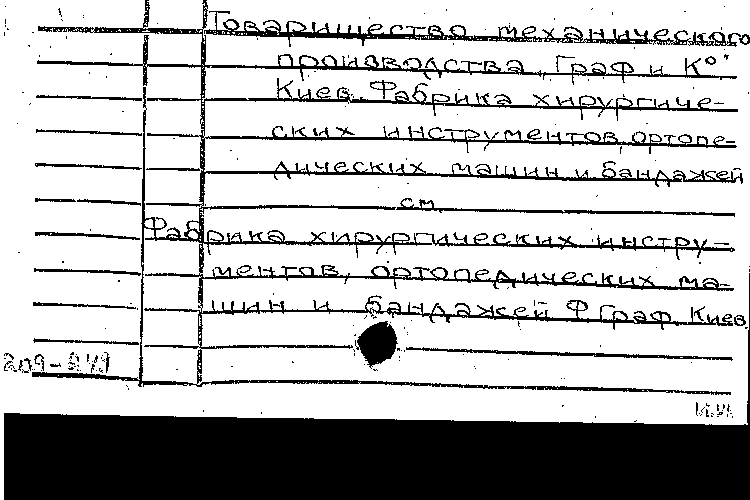 Товарищество механического
производства „Граф и К⁰"
Киев. Фабрика хирургиче-
ских инструментов, ортопе-
дических машин и бандажей
см.
Фабрика хирургических инстру-
ментов, ортопедических ма-
шин и бандажей Ф. Граф. Киев
209-249